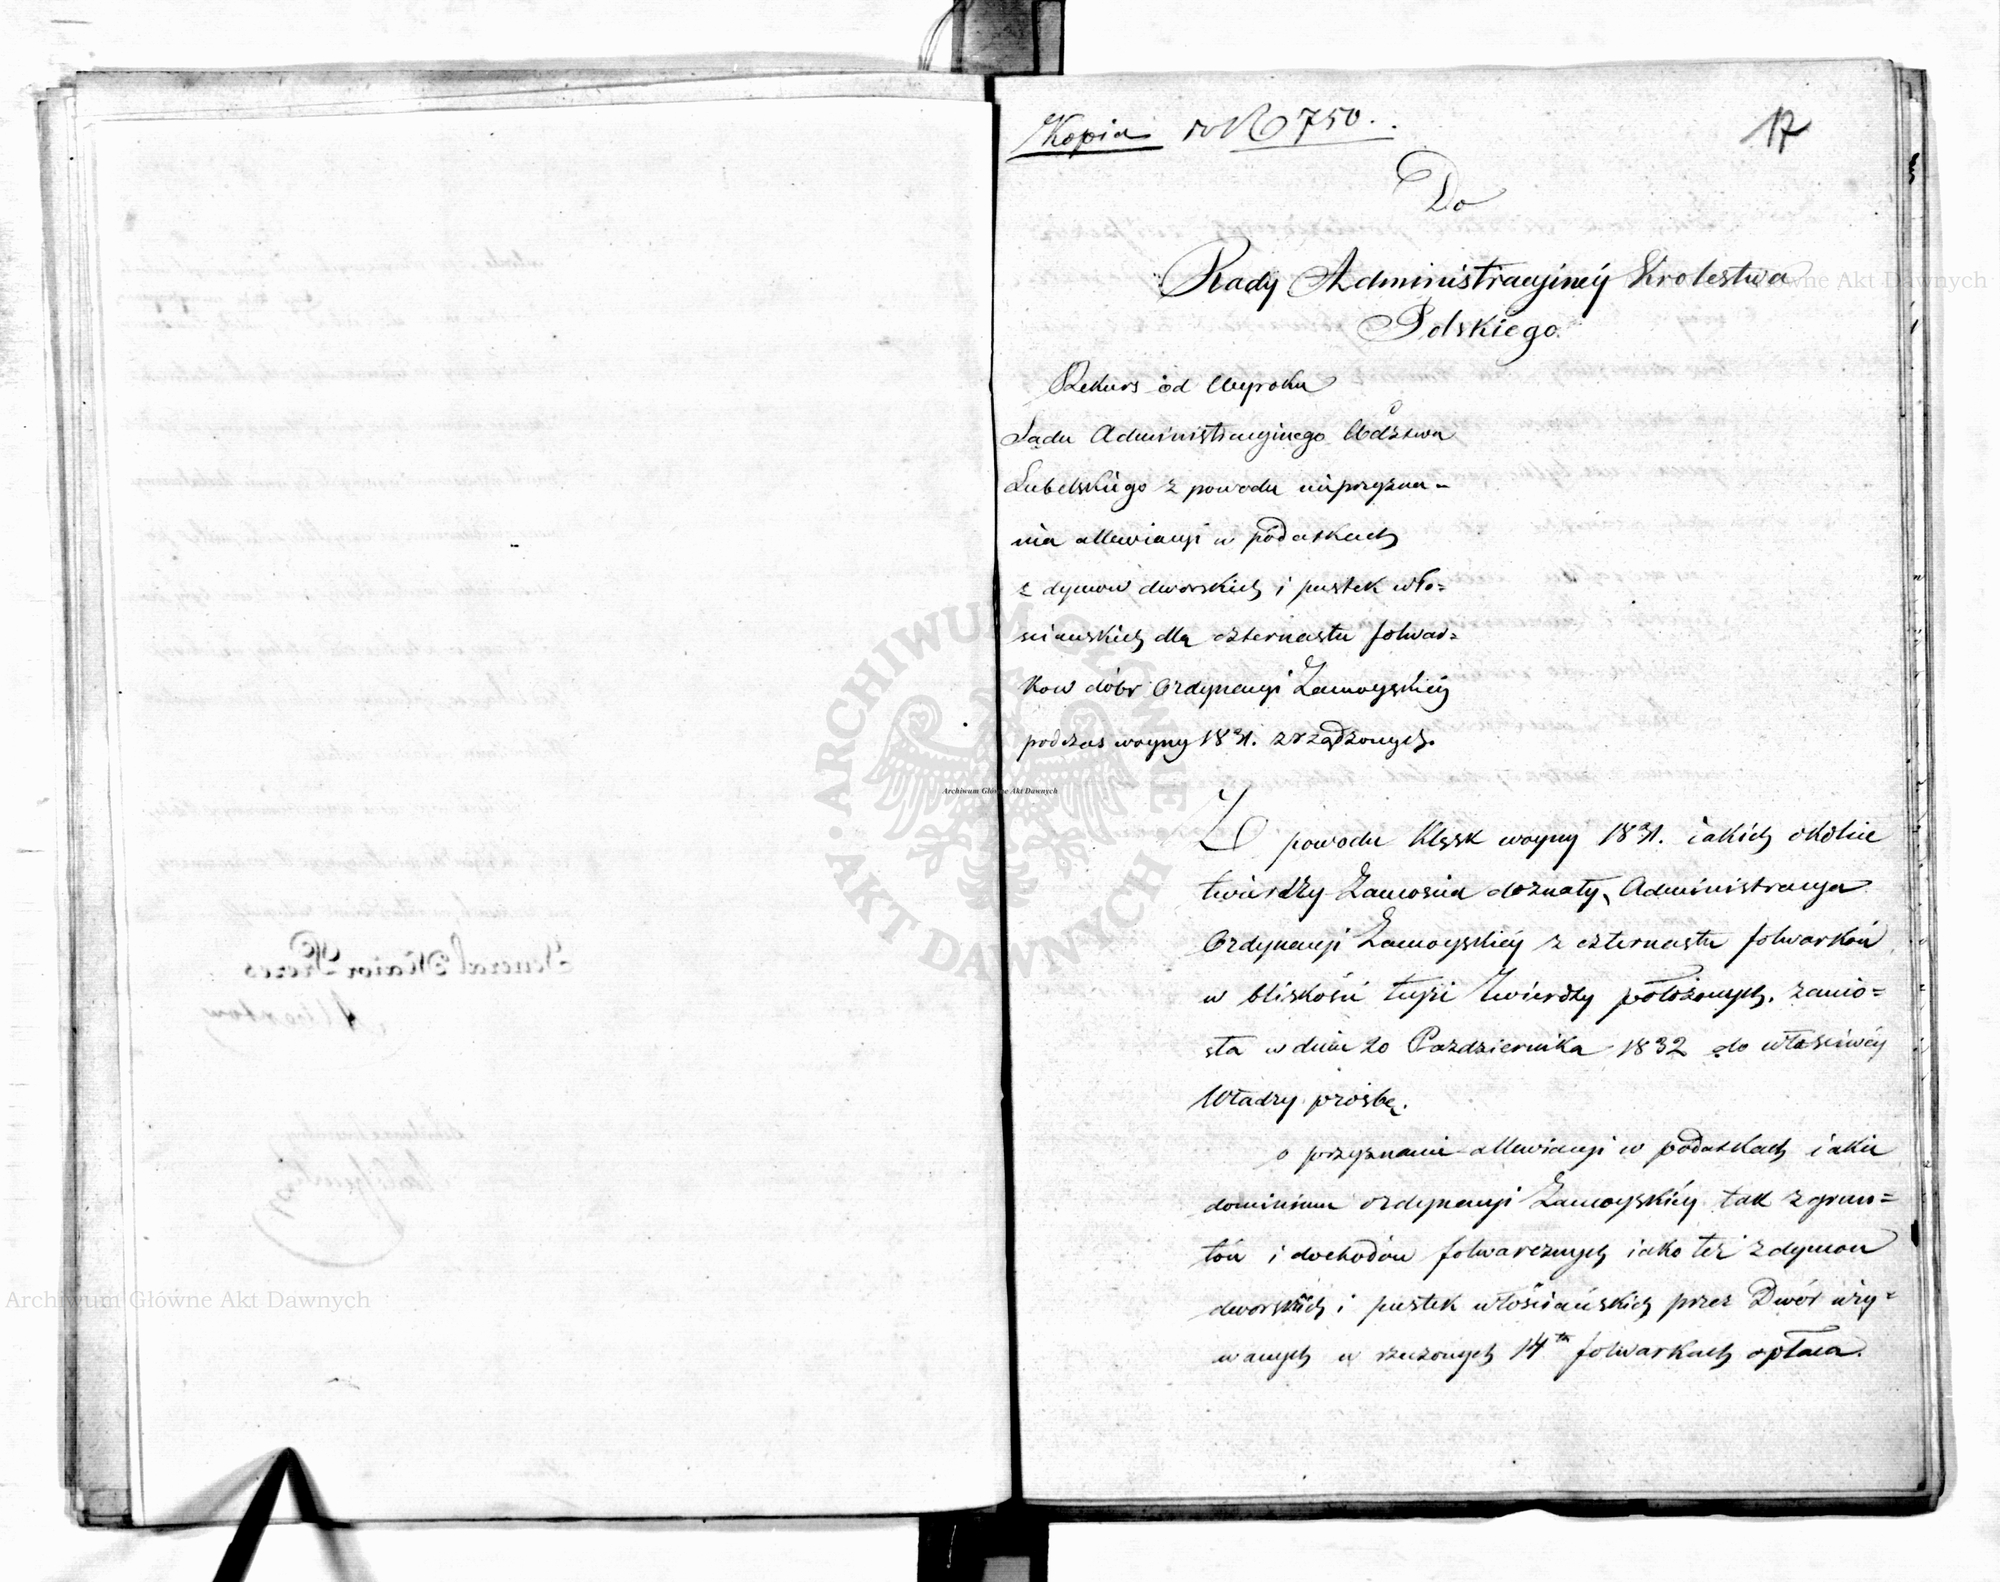 Kopia do N 750.
17
Do
Rady Administracyiney Krolestwa
Polskiego.
Rekurs od Wyroku
Sądu Administracyinego Wdztwa
Lubelskiego z powodu nieprzyzna-
nia allewiacyi w podatkach
z dymow dworskich i pustek wło=
sciańskich dla czternastu folwar=
kow dóbr Ordynacyi Zamoyskiey
podczas woyny 1831. zrządzonych.
Z powodu klęsk woyny 1831. iakich okolice
twierdzy Zamoscia doznały, Administracya
Ordynacyi Zamoyskiey z czternastu folwarków
w bliskości teyże twierdzy położonych, zanio=
sła w dniu 20 Pazdziernika 1832 do właściwéy
Władzy prosbę.
o przyznanie allewiacyi w podatkach iakie
dominium ordynacyi Zamoyskiéy tak z grun=
tów i dochodów folwarcznych iako też z dymow
dworskich i pustek włościańskich przez Dwór uży=
wanych w rzeczonych 14tu folwarkach opłaca.
Archiwum Główne Akt Dawnych
ARCHIWUM GŁÓWNE AKT DAWNYCH
Archiwum Główne Akt Dawnych